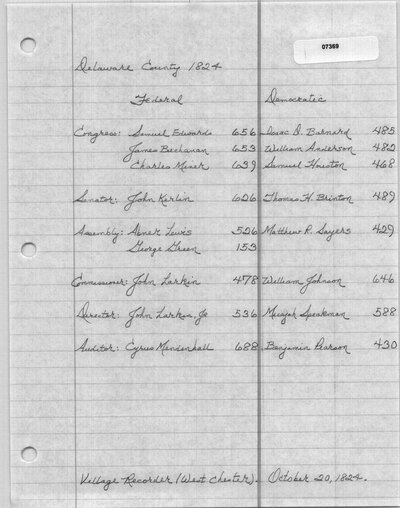 07369
Delaware County 1824
Federal Democratic
Congress: Samuel Edwards 656 Isaac D. Barnard 485
James Buchanan 653 William Anderson 482
Charles Miner 639 Samuel Houston 468
Senator: John Kerlin 626 Thomas H. Brinton 489
Assembly: Abner Lewis 526 Matthew R. Sayers 429
George Green 153
Commissioner: John Larkin 478 William Johnson 646
Director: John Larkin, Jr 536 Micajah Speakman 588
Auditor: Cyrus Mendenhall 688 Benjamin Pearson 430
Village Recorder (West Chester). October 20, 1824.